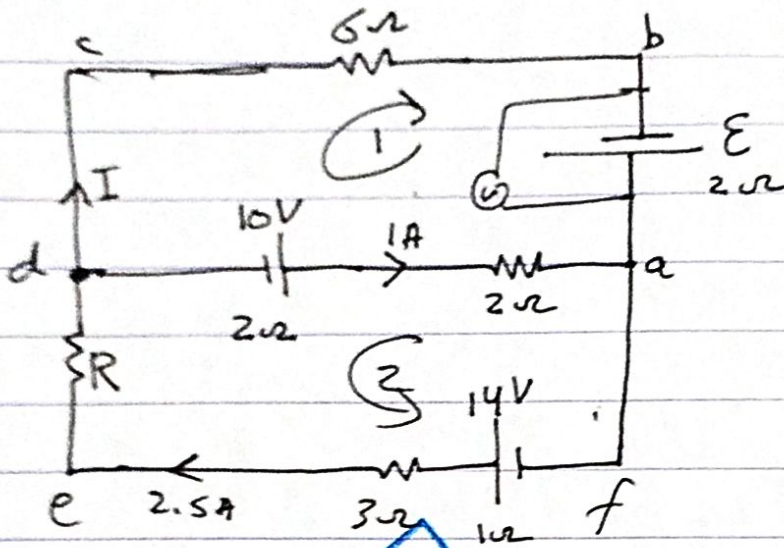 c 6Ω b
1
Ɛ
2Ω
I
10V 1A
d a
2Ω 2Ω
R
2 14V
e 2.5A 3Ω 1Ω f